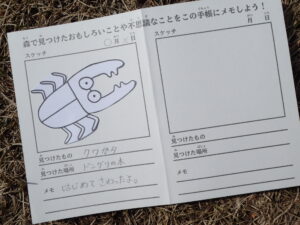 森で見つけたおもしろいことや不思議なことをこの手帳にメモしよう!
スケッチ
○月 日
見つけたもの クワガタ
見つけた場所 ドングリの木
メモ はじめてさわったよ。
スケッチ
月 日
見つけたもの
見つけた場所
メモ